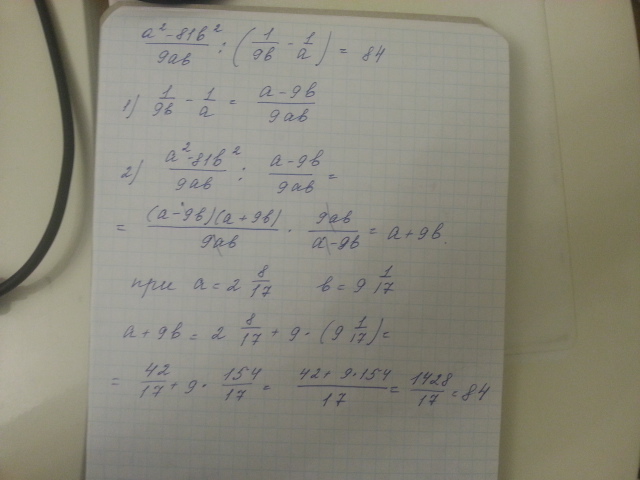 (a² - 81b²)/(9ab) : (1/(9b) - 1/a) = 84
1) 1/(9b) - 1/a = (a - 9b)/(9ab)
2) (a² - 81b²)/(9ab) : (a - 9b)/(9ab) =
= ((a - 9b)(a + 9b))/(9ab) · (9ab)/(a - 9b) = a + 9b.
при a = 2 8/17 b = 9 1/17
a + 9b = 2 8/17 + 9 · (9 1/17) =
= 42/17 + 9 · 154/17 = (42 + 9·154)/17 = 1428/17 = 84